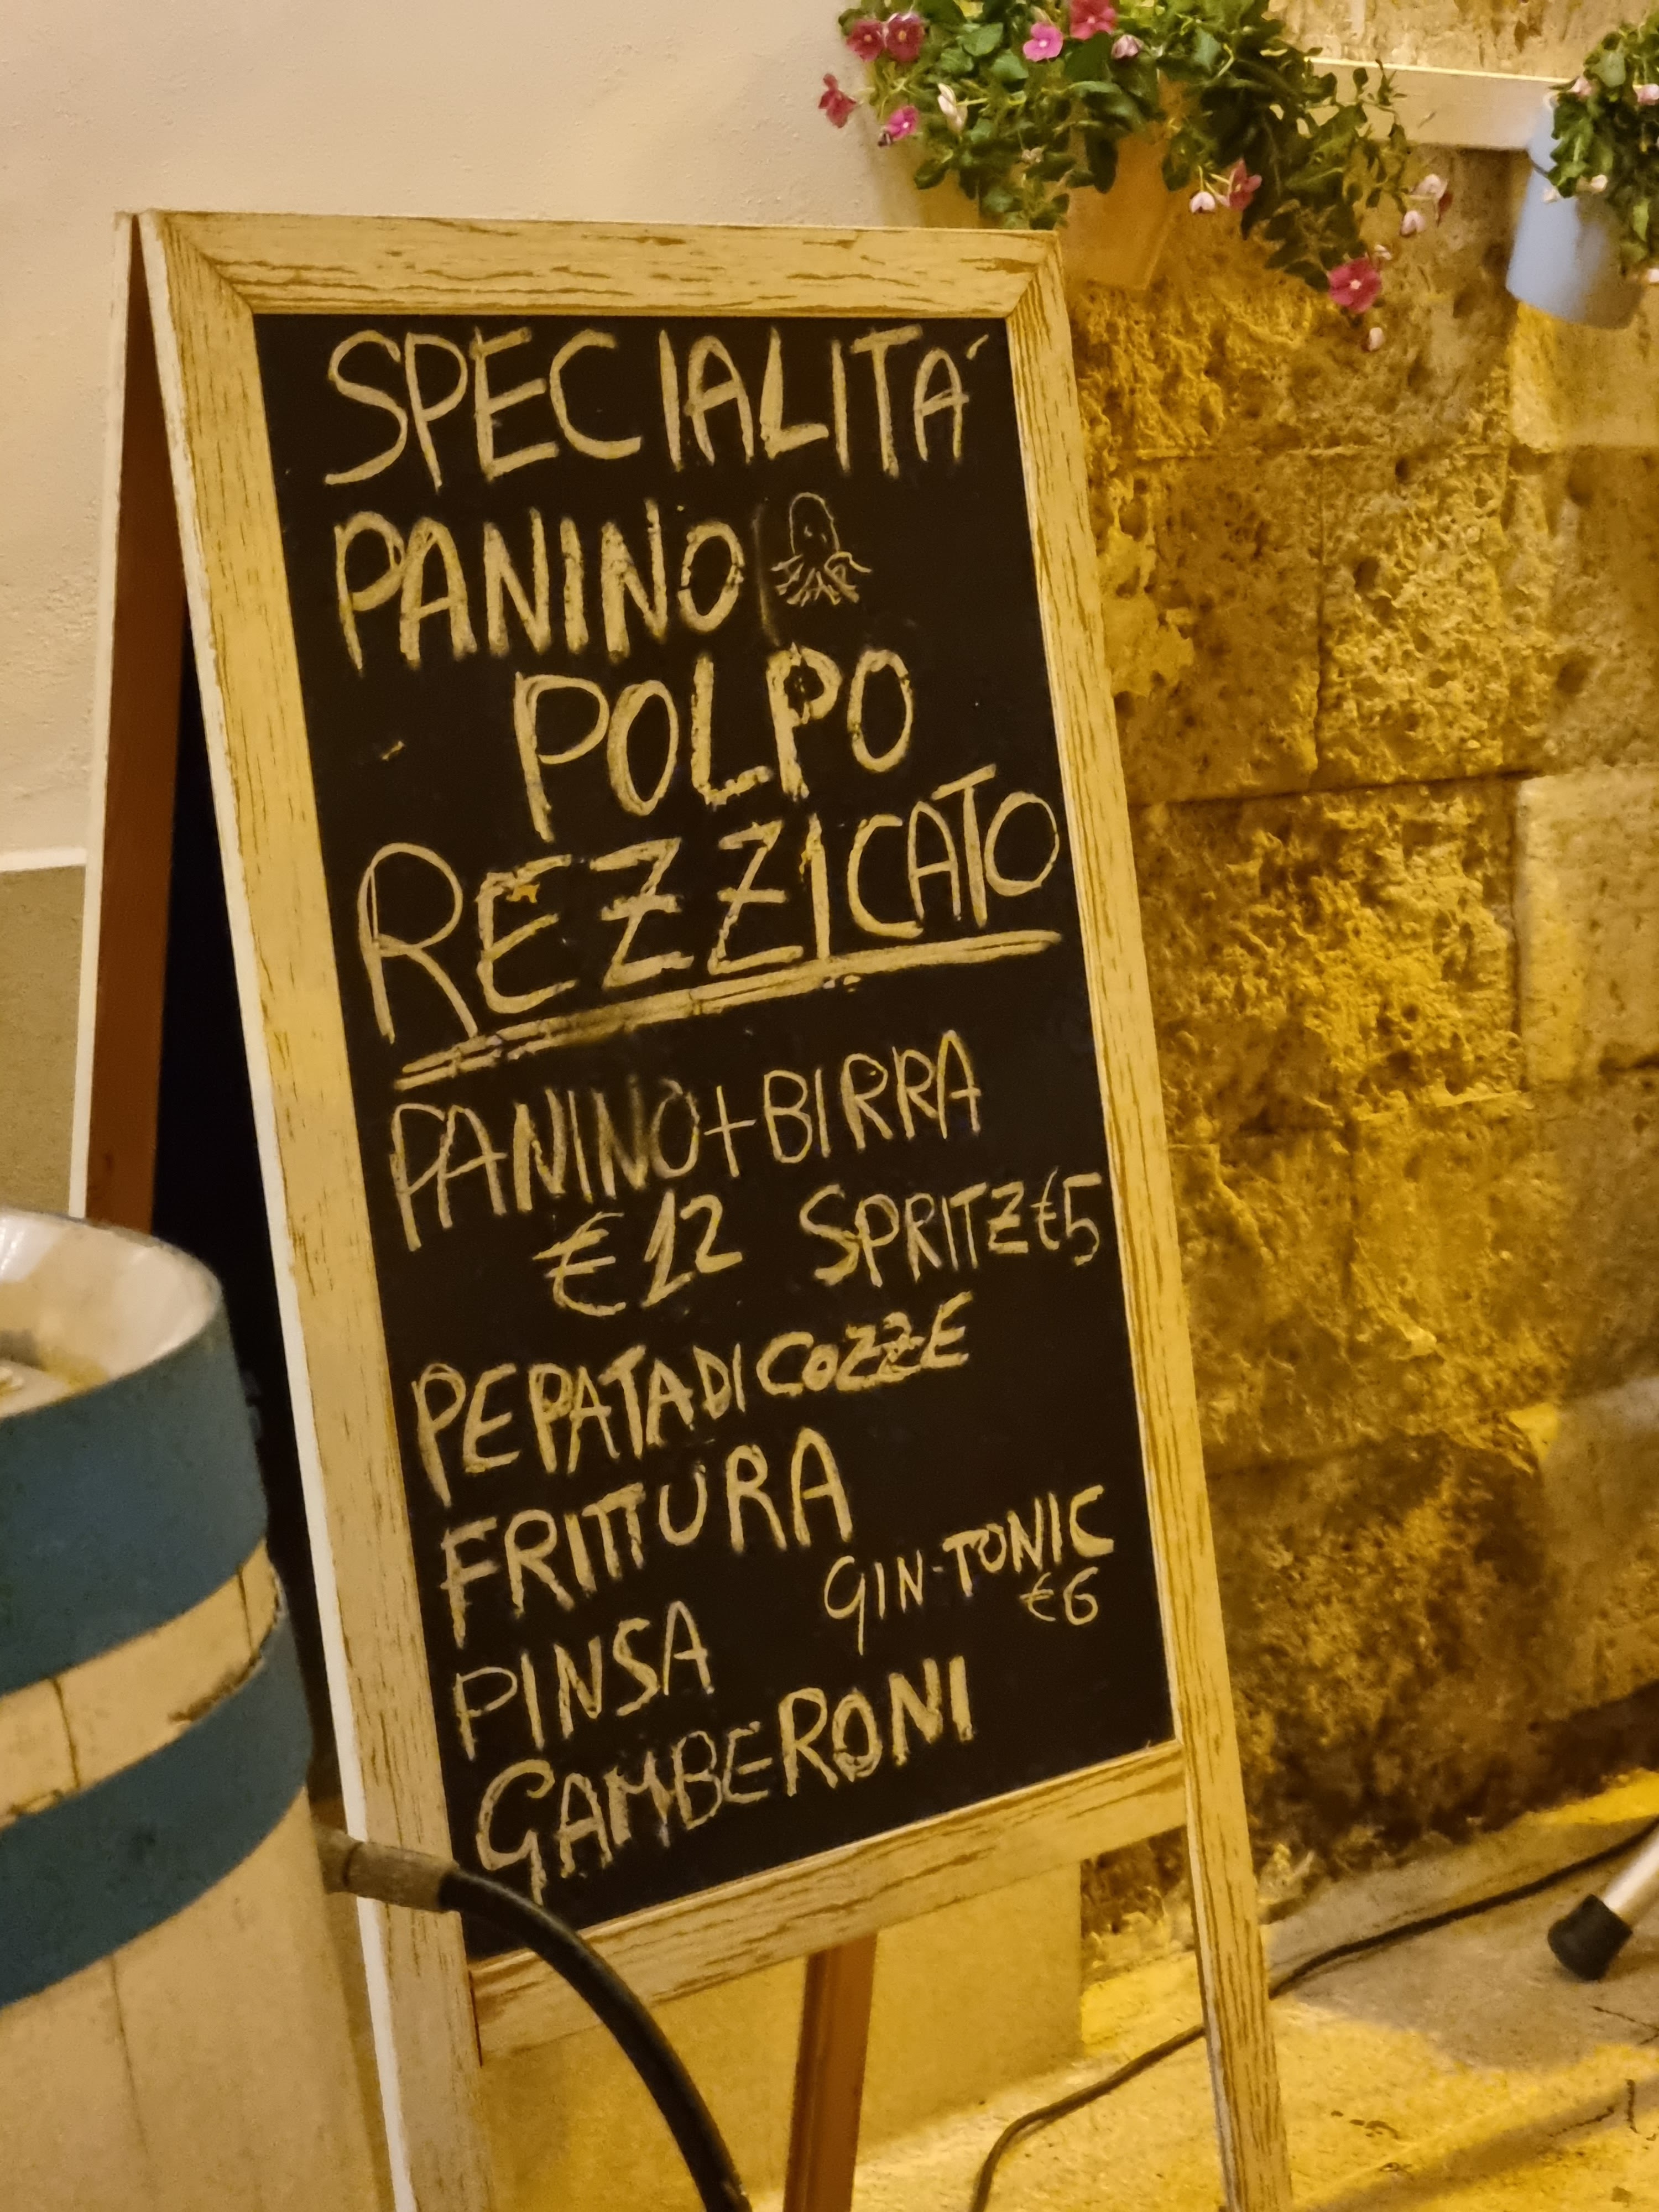 SPECIALITÁ
PANINO
POLPO
REZZICATO
PANINO+BIRRA
€12 SPRITZ €5
PEPATA DI COZZE
FRITTURA
GIN-TONIC
€6
PINSA
GAMBERONI